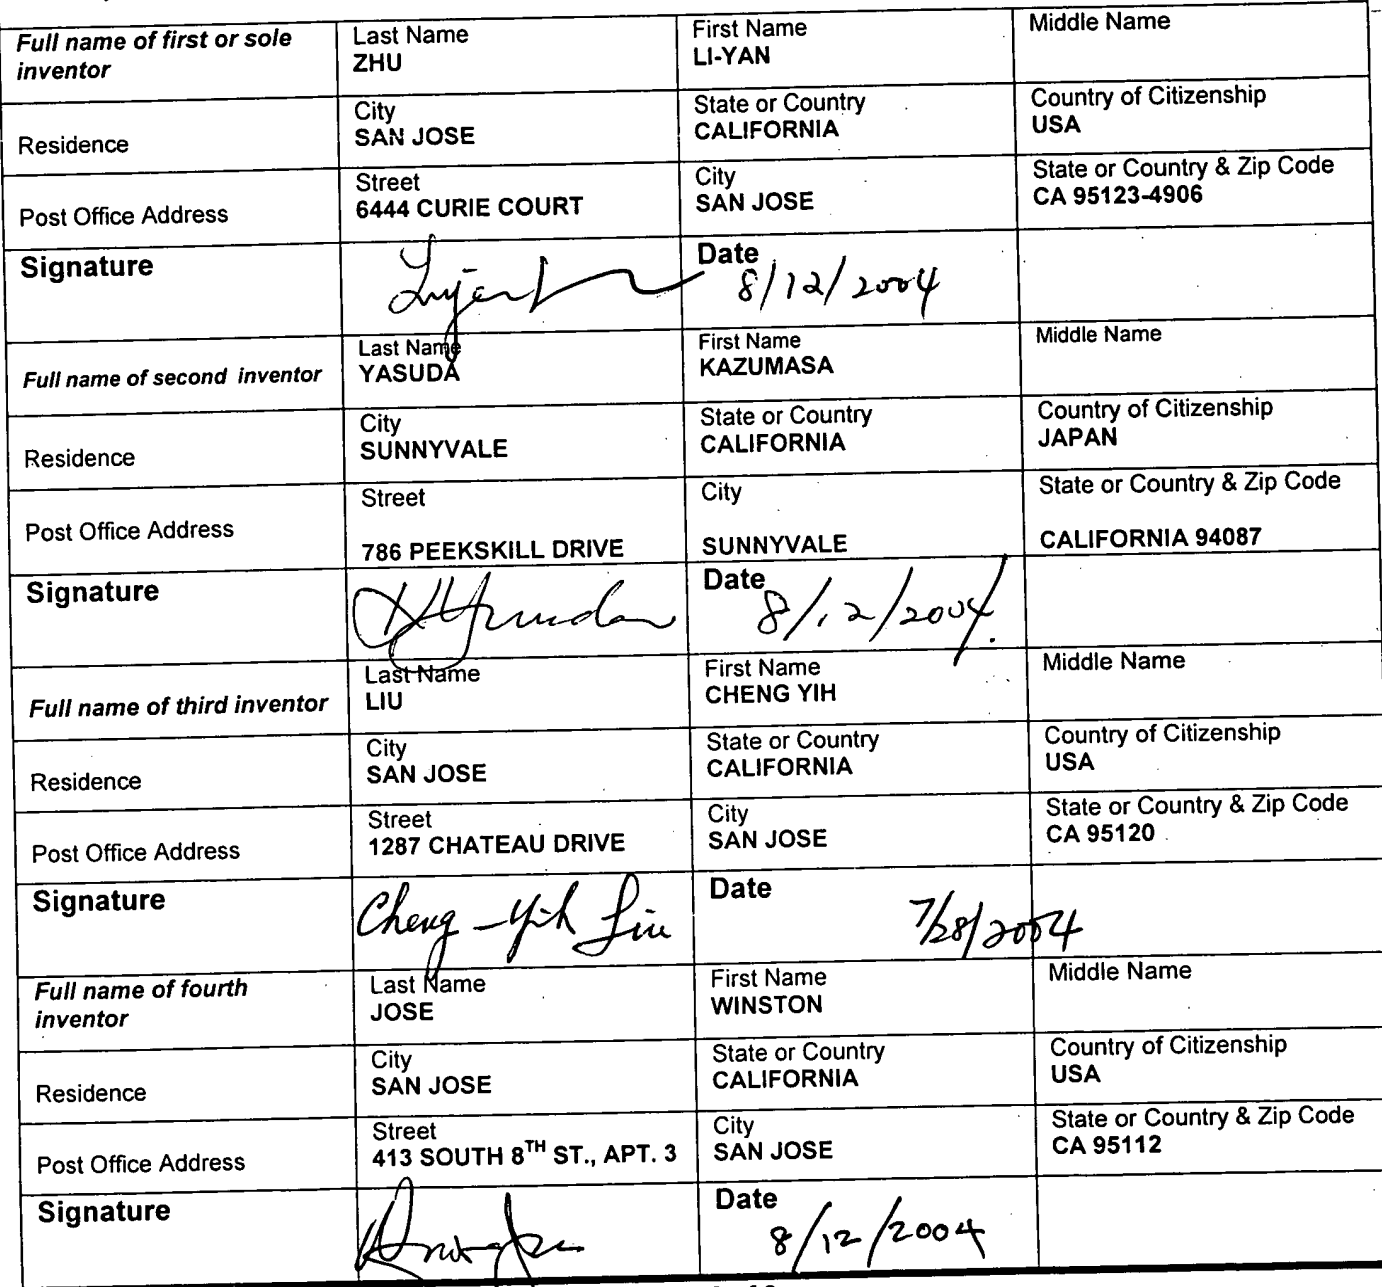 Full name of first or sole inventor
Last Name
ZHU
First Name
LI-YAN
Middle Name
Residence
City
SAN JOSE
State or Country
CALIFORNIA
Country of Citizenship
USA
Post Office Address
Street
6444 CURIE COURT
City
SAN JOSE
State or Country & Zip Code
CA 95123-4906
Signature
Date
8/12/2004
Full name of second inventor
Last Name
YASUDA
First Name
KAZUMASA
Middle Name
Residence
City
SUNNYVALE
State or Country
CALIFORNIA
Country of Citizenship
JAPAN
Post Office Address
Street
786 PEEKSKILL DRIVE
City
SUNNYVALE
State or Country & Zip Code
CALIFORNIA 94087
Signature
Date
8/12/2004
Full name of third inventor
Last Name
LIU
First Name
CHENG YIH
Middle Name
Residence
City
SAN JOSE
State or Country
CALIFORNIA
Country of Citizenship
USA
Post Office Address
Street
1287 CHATEAU DRIVE
City
SAN JOSE
State or Country & Zip Code
CA 95120
Signature
Cheng-Yih Liu
Date
7/28/2004
Full name of fourth inventor
Last Name
JOSE
First Name
WINSTON
Middle Name
Residence
City
SAN JOSE
State or Country
CALIFORNIA
Country of Citizenship
USA
Post Office Address
Street
413 SOUTH 8TH ST., APT. 3
City
SAN JOSE
State or Country & Zip Code
CA 95112
Signature
Date
8/12/2004